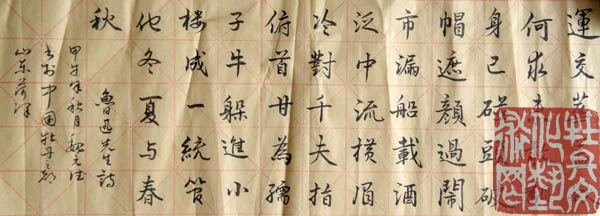 運交
何求未
身已碰頭破
帽遮顏過鬧
市漏船載酒
泛中流横眉
冷對千夫指
俯首甘為孺
子牛躲進小
樓成一統管
他冬夏与春
秋
魯迅先生詩
甲午年秋月魏元
书於中国牡丹之都
山东菏泽